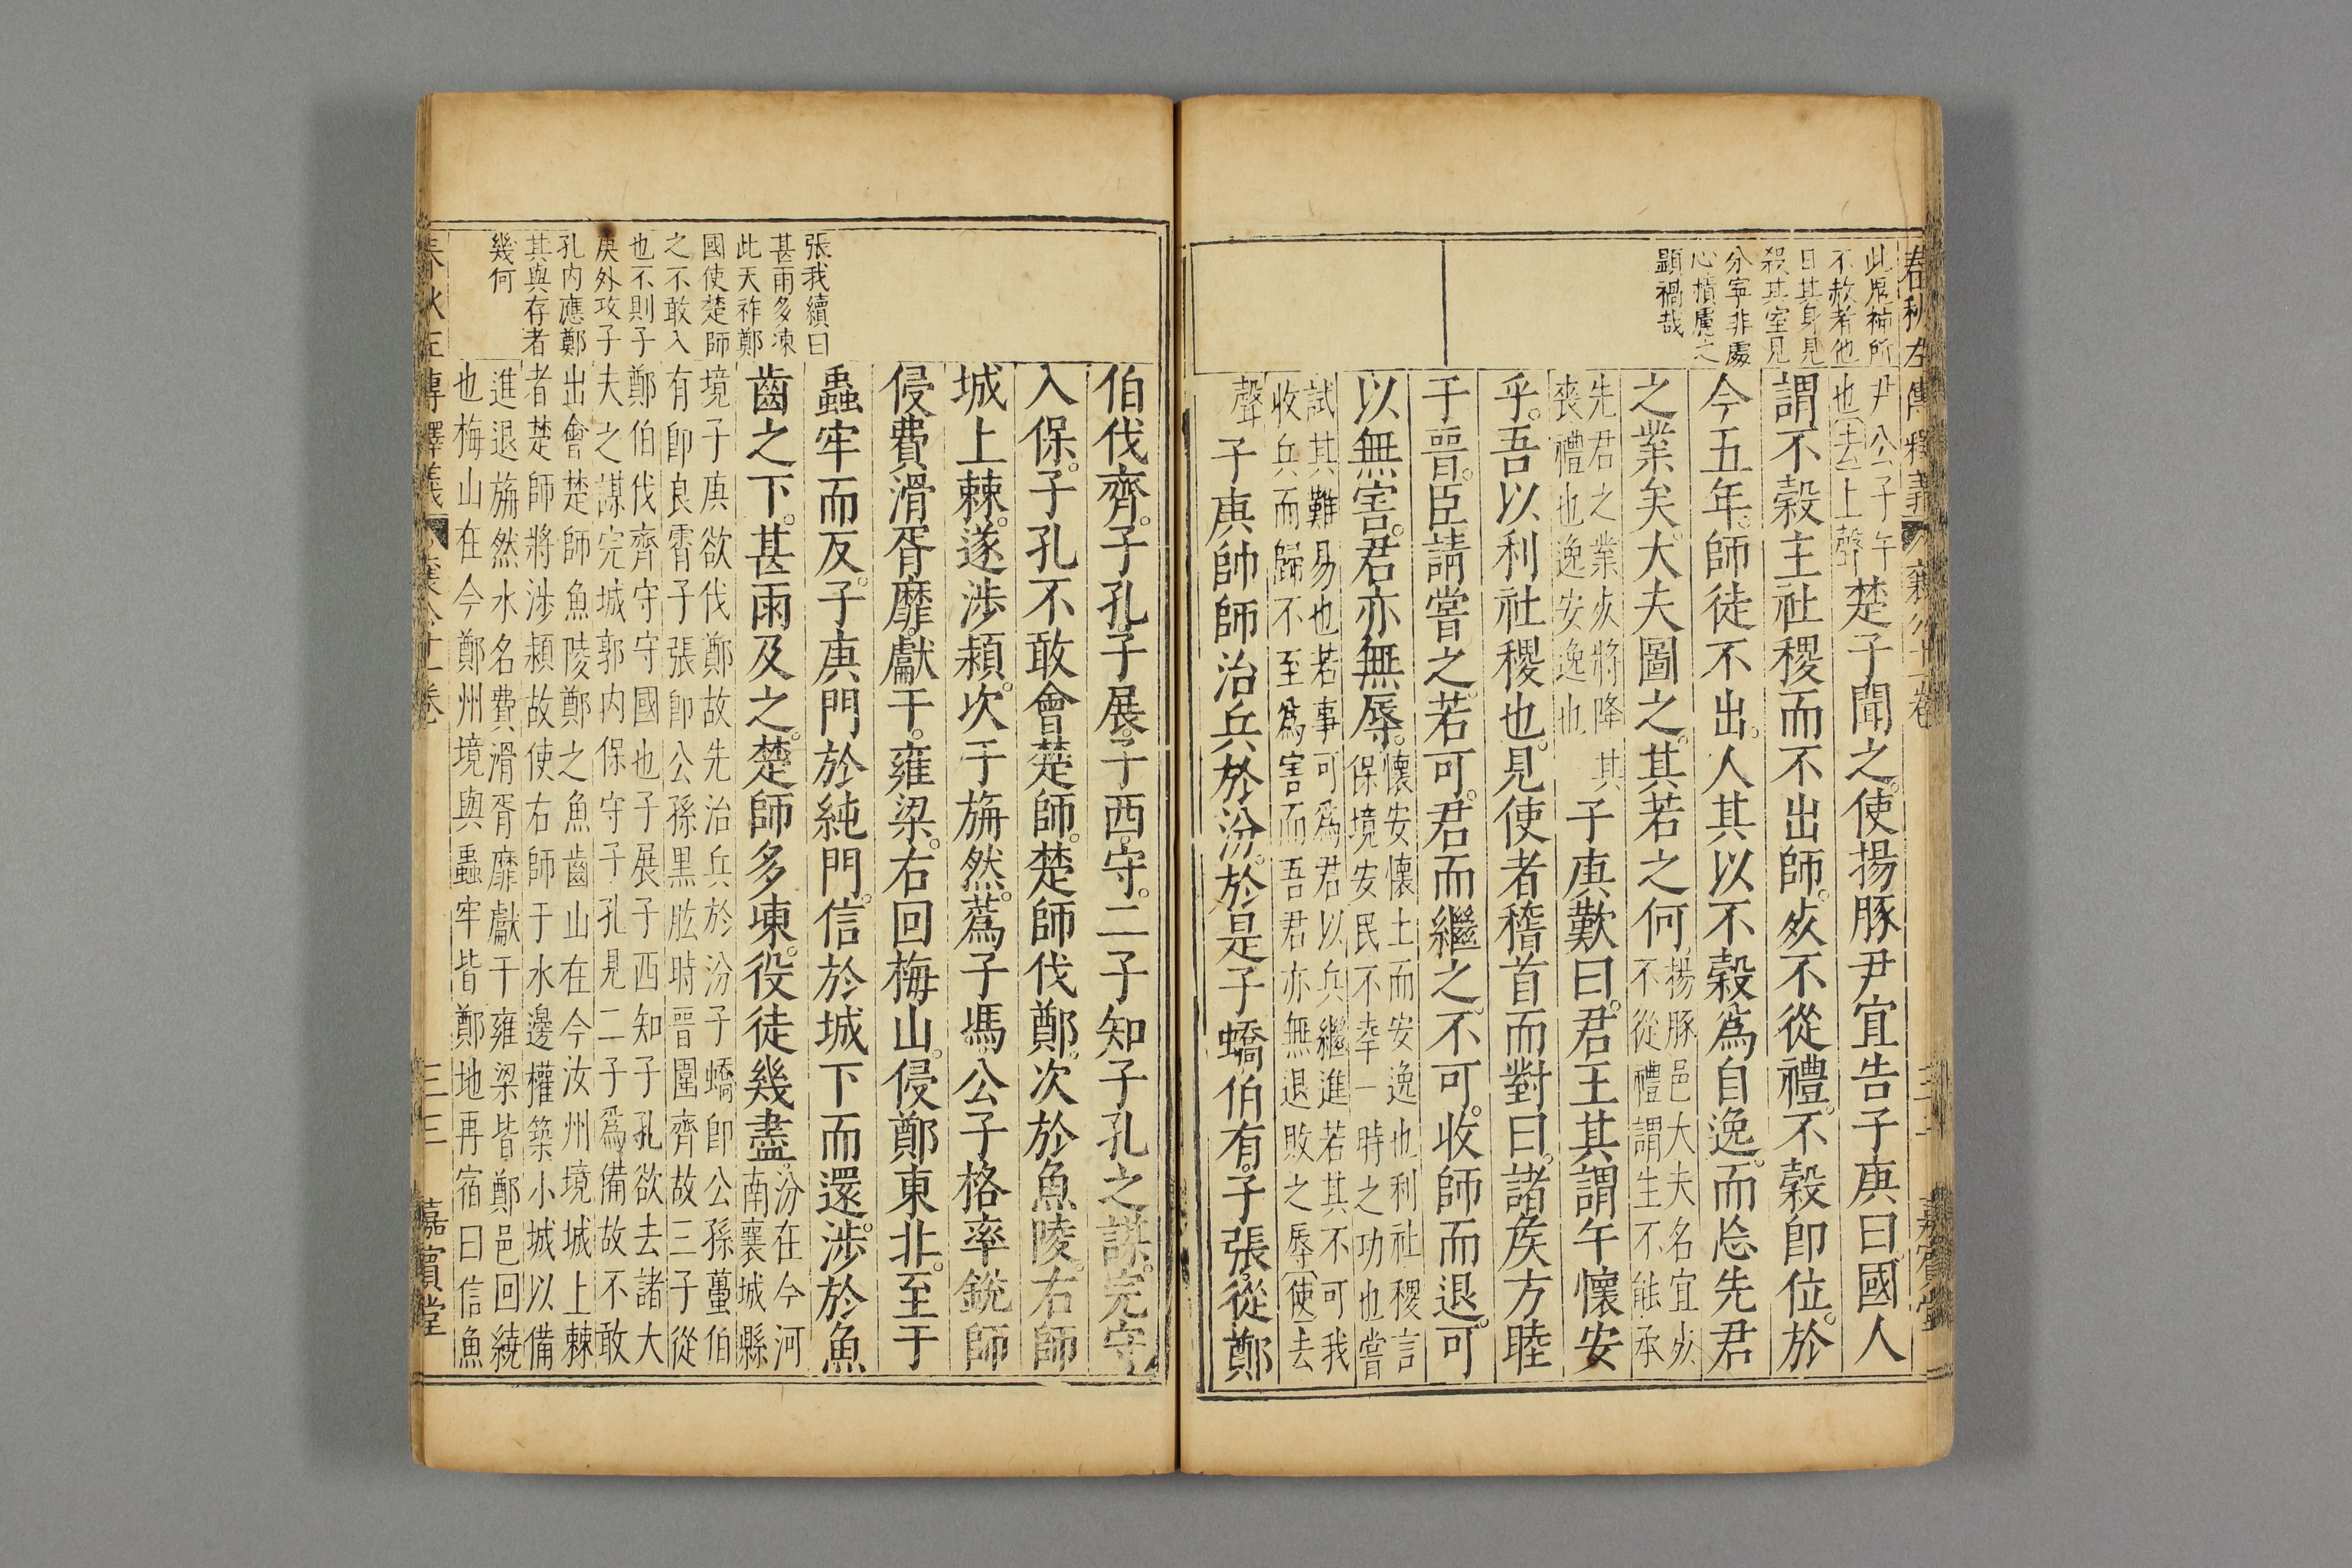 春秋左傳釋義
襄公
嘉賓堂
此鬼神所
不赦者他
日其身見
殺其室見
分寧非處
心積慮之
顯禍哉
尹公子午
也去上聲
楚子聞之使揚豚尹宜告子庚曰國人
謂不穀主社稷而不出師死不從禮不穀卽位於
今五年師徒不出人其以不穀爲自逸而忘先君
之業矣大夫圖之其若之何
揚豚邑大夫名宜死
不從禮謂生不能承
先君之業死將降其
喪禮也逸安逸也
子庚歎曰君王其謂午懷安
乎吾以利社稷也見使者稽首而對曰諸侯方睦
于晉臣請嘗之若可君而繼之不可收師而退可
以無害君亦無辱
懷安懷土而安逸也利社稷言
保境安民不幸一時之功也嘗
試其難易也若事可爲君以兵繼進若其不可我
收兵而歸不至爲害而吾君亦無退敗之辱使去
聲
子庚帥師治兵於汾於是子蟜伯有子張從鄭
伯伐齊子孔子展子西守二子知子孔之謀完守
入保子孔不敢會楚師楚師伐鄭次於魚陵右師
城上棘遂涉潁次于旃然蔿子馮公子格率銳師
侵費滑胥靡獻于雍梁右回梅山侵鄭東北至于
蟲牢而反子庚門於純門信於城下而還涉於魚
齒之下甚雨及之楚師多凍役徒幾盡
汾在今河
南襄城縣
境子庚欲伐鄭故先治兵於汾子蟜卽公孫蠆伯
有卽良霄子張卽公孫黑肱時晉圍齊故三子從
鄭伯伐齊守守國也子展子西知子孔欲去諸大
夫之謀完城郭內保守子孔見二子爲備故不敢
出會楚師魚陵鄭之魚齒山在今汝州境城上棘
者楚師將涉潁故使右師于水邊權築小城以備
進退旃然水名費滑胥靡獻于雍梁皆鄭邑回繞
也梅山在今鄭州境與蟲牢皆鄭地再宿曰信魚
張我續曰
甚雨多凍
此天祚鄭
國使楚師
之不敢入
也不則子
庚外攻子
孔內應鄭
其與存者
幾何
春秋左傳釋義
襄公十二卷
三三
嘉賓堂